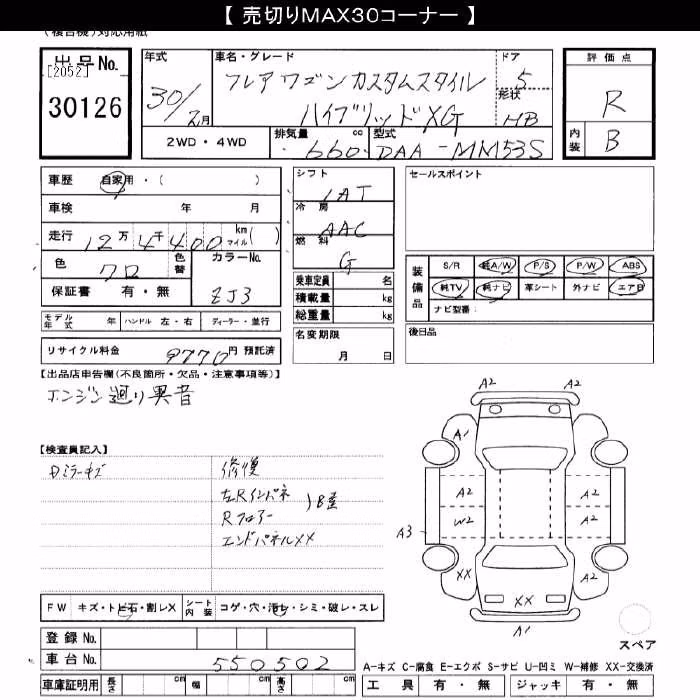 【 売切りMAX30コーナー 】
(複合機)対応用紙
出品No. [2052]
30126
年式 30/2月
車名・グレード フレアワゴン カスタムスタイル
ハイブリッドXG
ドア 5
形状 HB
2WD・4WD
排気量 660 cc
型式 DAA-MM53S
評価点 R
内装 B
車歴 自家用・( )
車検 年 月
走行 12万4千400 km マイル ( )
色 クロ 色替
カラーNo. ZJ3
保証書 有・無
モデル年式 年 ハンドル 左・右 ディーラー・並行
リサイクル料金 9770円 預託済
シフト IAT
冷房 AAC
燃料 G
乗車定員 名
積載量 kg
総重量 kg
名変期限 月 日
セールスポイント
装備品 S/R 純A/W P/S P/W ABS
純TV 純ナビ 革シート 外ナビ エアB
ナビ型番:
後日品
【出品店申告欄(不良箇所・欠品・注意事項等)】
エンジン廻り異音
【検査員記入】
Dミラーキズ
修復
左Rインパネ
Rフロアー
エンドパネルXX
A2 A2
A1
A2 A2
A3 W2 A2
XX A2
XX
A1
スペア
FW キズ・トビ石・割レX シート内装 コゲ・穴・汚レ・シミ・破レ・スレ
登録No.
車台No. 550502
車庫証明用 長さ cm 幅 cm 高さ cm
A-キズ C-腐食 E-エクボ S-サビ U-凹ミ W-補修 XX-交換済
工具 有・無 ジャッキ 有・無